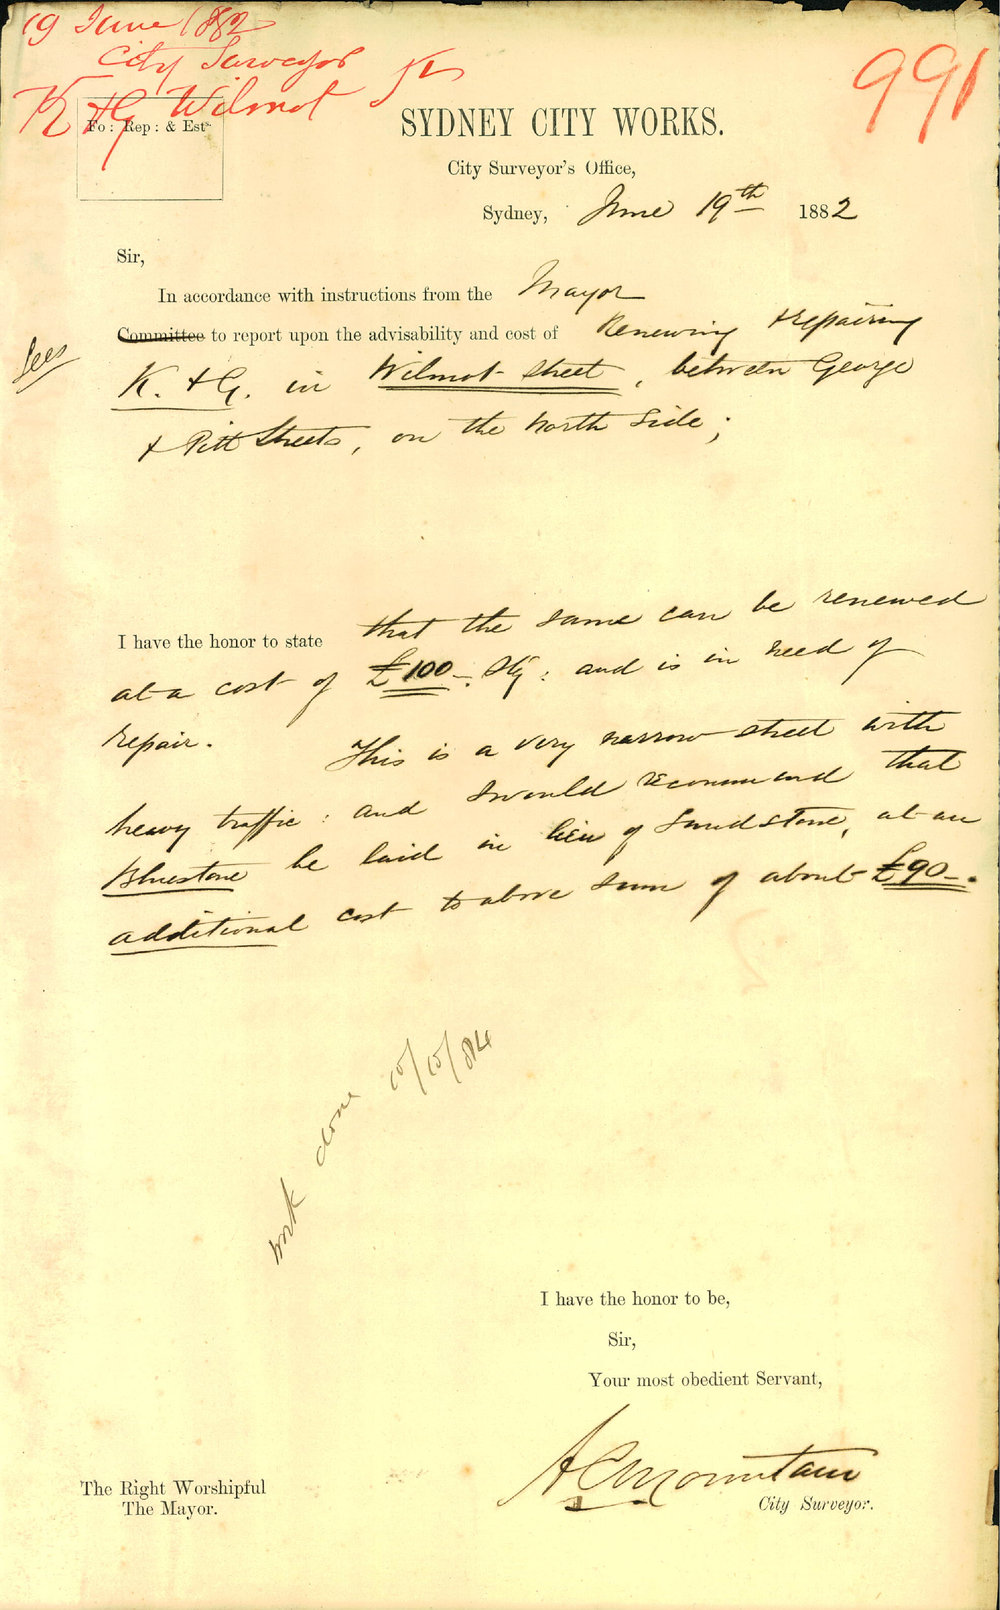 19 June 1882
City Surveyor
K & G Wilmot St
991
Fo: Rep: & Est.
SYDNEY CITY WORKS.
City Surveyor's Office,
Sydney, June 19th 1882
Sir,
In accordance with instructions from the Mayor
Committee to report upon the advisability and cost of Renewing & repairing
K. & G. in Wilmot Street, between George
& Pitt Streets, on the North Side;
I have the honor to state that the same can be renewed
at a cost of £100-. Stg: and is in need of
repair.
This is a very narrow street with
heavy traffic: and I would recommend that
Bluestone be laid in lieu of Sandstone, at an
additional cost to above sum of about £90-.
work done 10/10/84
I have the honor to be,
Sir,
Your most obedient Servant,
A C Mountain
City Surveyor.
The Right Worshipful
The Mayor.